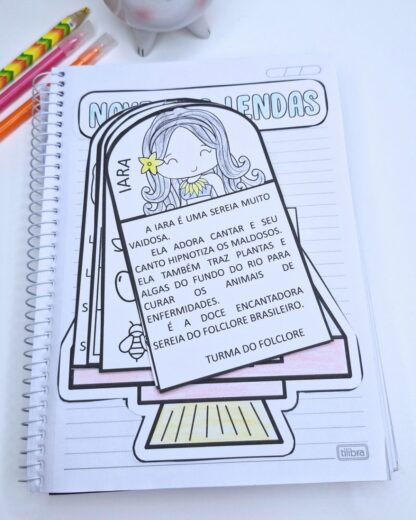 LENDAS
IARA
A IARA É UMA SEREIA MUITO
VAIDOSA.
ELA ADORA CANTAR E SEU
CANTO HIPNOTIZA OS MALDOSOS.
ELA TAMBÉM TRAZ PLANTAS E
ALGAS DO FUNDO DO RIO PARA
CURAR OS ANIMAIS DE
ENFERMIDADES.
É A DOCE ENCANTADORA
SEREIA DO FOLCLORE BRASILEIRO.
TURMA DO FOLCLORE
tilibra